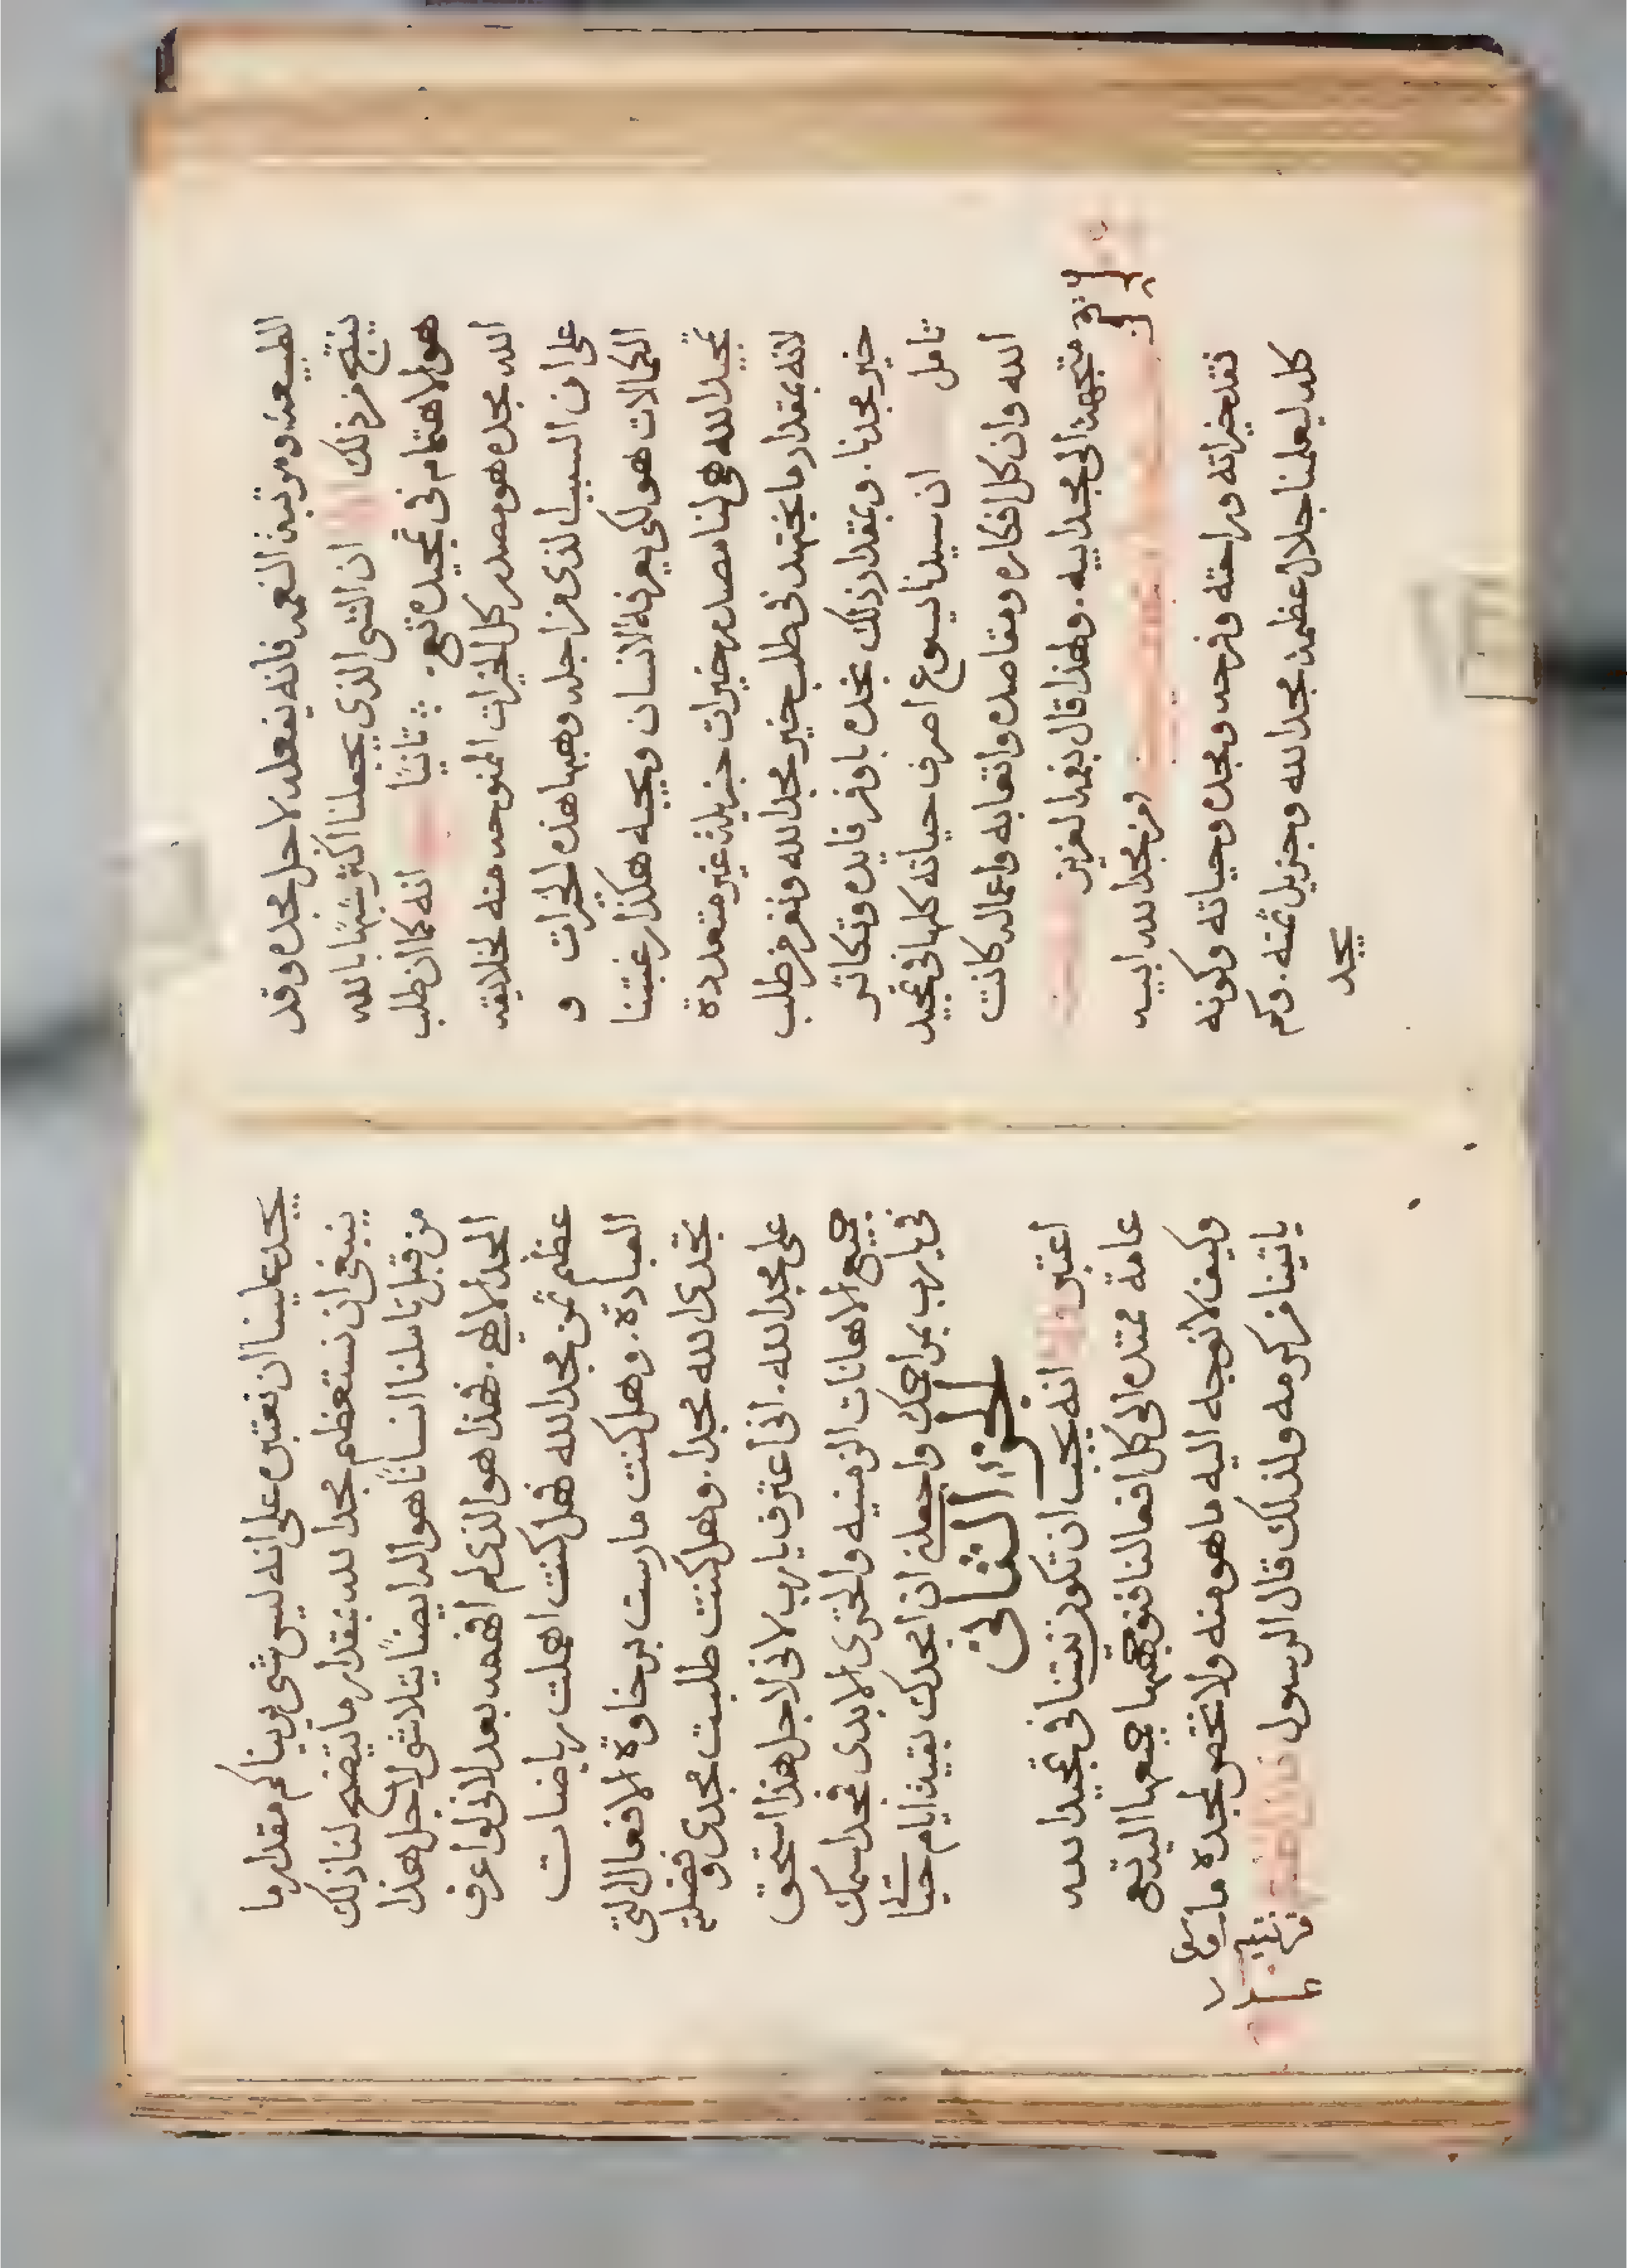 الطبيعه ومرتبة النعمه فانه يفعله لاجل مجده وقد
ينتج من ذلك ان الشي الذي يجعلنا اكثر شبهًا بالله
هو الاهتمام في تمجيده تع: ثانيًا انه كما ان طلب
الله مجده هو مصدر كل الخيرات الممنوحه منه لخلايقه
على ان السبيل الذي من اجله وهبها هذه الخيرات و
الكمالات هو لكي يعرفه الانسان ويحبه هكذا رغبتنا
تمجيد الله هي لنا مصدر خيرات جزيلة غير متعددة
لانه بمقدار ما نجتهد في طلب خير مجد الله ونفر من طلب
خير مجدنا. وبمقدار ذلك نجده باوفر فايده وتكاثر
تامل ان سيدنا يسوع اصرف حياته كلها في تمجيد
الله وان كل افكاره ومقاصده واتعابه واعماله كانت
متجهة الى مجد ابيه. ولهذا قال بفمه العزيز
ومن مجد الله ابيه
فقد خيراته وراحته وفرحه ومجده وحياته وكونه
كله ليعلمنا جلال عظمة مجد الله وجزيل ثمنه. وكم
يجد
يجد علينا ان نعتبره على انه ليس شي يرينا كم مقدار ما
ينبغي ان نستعظم مجد الله بمقدار ما يتضح لنا ذلك
من قبل تاملنا انسانًا هو اله ايضًا يتلاشى لاجل هذا
المجد الالهي. فهذا هو الذي لم افهمه بعد لاني لو اعرف
عظم ثمن مجد الله فهل كنت اهملت رياضات
العبادة. وهل كنت مارست برخاوة الافعال التي
تجدي الله مجدا. وهل كنت طلبت مجدي وفضلته
على مجد الله. اني اعترف يارب لاني لاجل هذا استحق
جميع الاهانات الزمنيه والخزي الابدي فمجد اسمك
في يارب بمراحمك واجعلني ان امجدك بقية ايام حياتي
الجزء الثاني
اعتبر انه يجب ان تكون نيتنا في تمجيد الله
عامة ممتده الى كل افعالنا فنوجهها جميعها اليه تع
وكيف لا نوجه اليه ما هو منه ولا نخصص لمجده ما
ياتينا من كرمه ولذلك قال الرسول